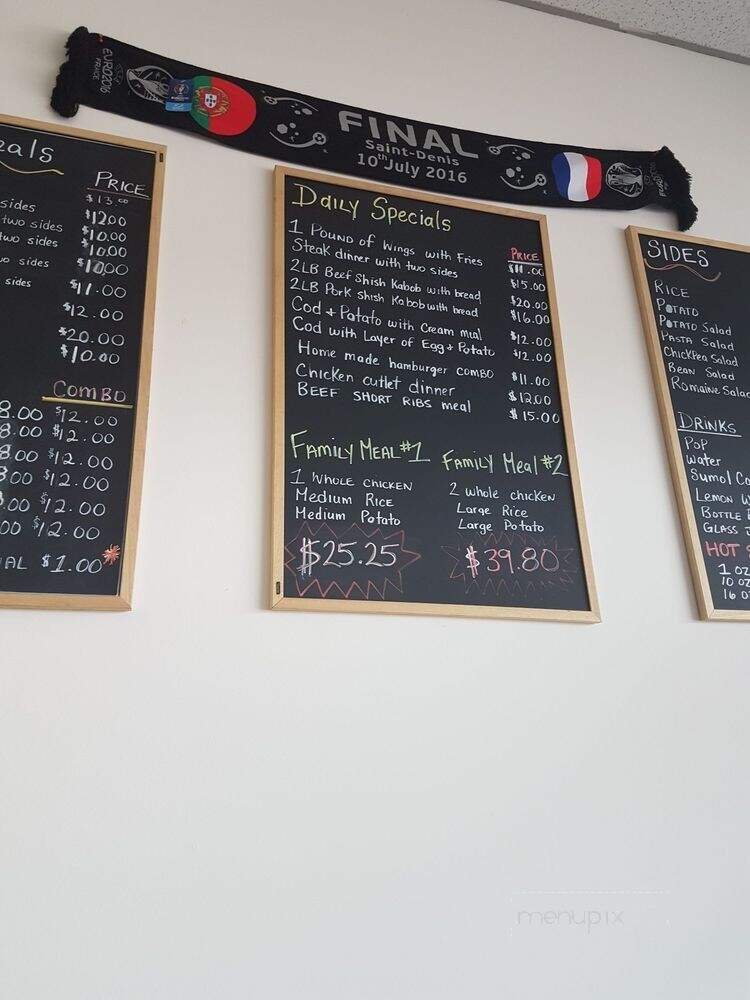 EURO2016
FRANCE
FINAL
Saint-Denis
10th July 2016
eals
PRICE
sides $13.00
two sides $12.00
two sides $10.00
$10.00
wo sides $10.00
sides $11.00
$12.00
$20.00
$10.00
COMBO
8.00 $12.00
8.00 $12.00
8.00 $12.00
.00 $12.00
.00 $12.00
00 $12.00
AL $1.00
Daily Specials
PRICE
1 Pound of Wings with Fries $11.00
Steak dinner with two sides $15.00
2LB Beef Shish Kabob with bread $20.00
2LB Pork shish Kabob with bread $16.00
Cod + Potato with Cream meal $12.00
Cod with Layer of Egg + Potato $12.00
Home made hamburger combo $11.00
Chicken cutlet dinner $12.00
BEEF SHORT RIBS meal $15.00
Family Meal #1
1 Whole chicken
Medium Rice
Medium Potato
$25.25
Family Meal #2
2 whole chicken
Large Rice
Large Potato
$39.80
SIDES
RICE
POTATO
POTATO Salad
PASTA Salad
Chickpea Salad
Bean Salad
Romaine Salad
DRINKS
POP
Water
Sumol Co
Lemon W
Bottle
Glass
HOT
1 oz
10 oz
16 oz
menupix